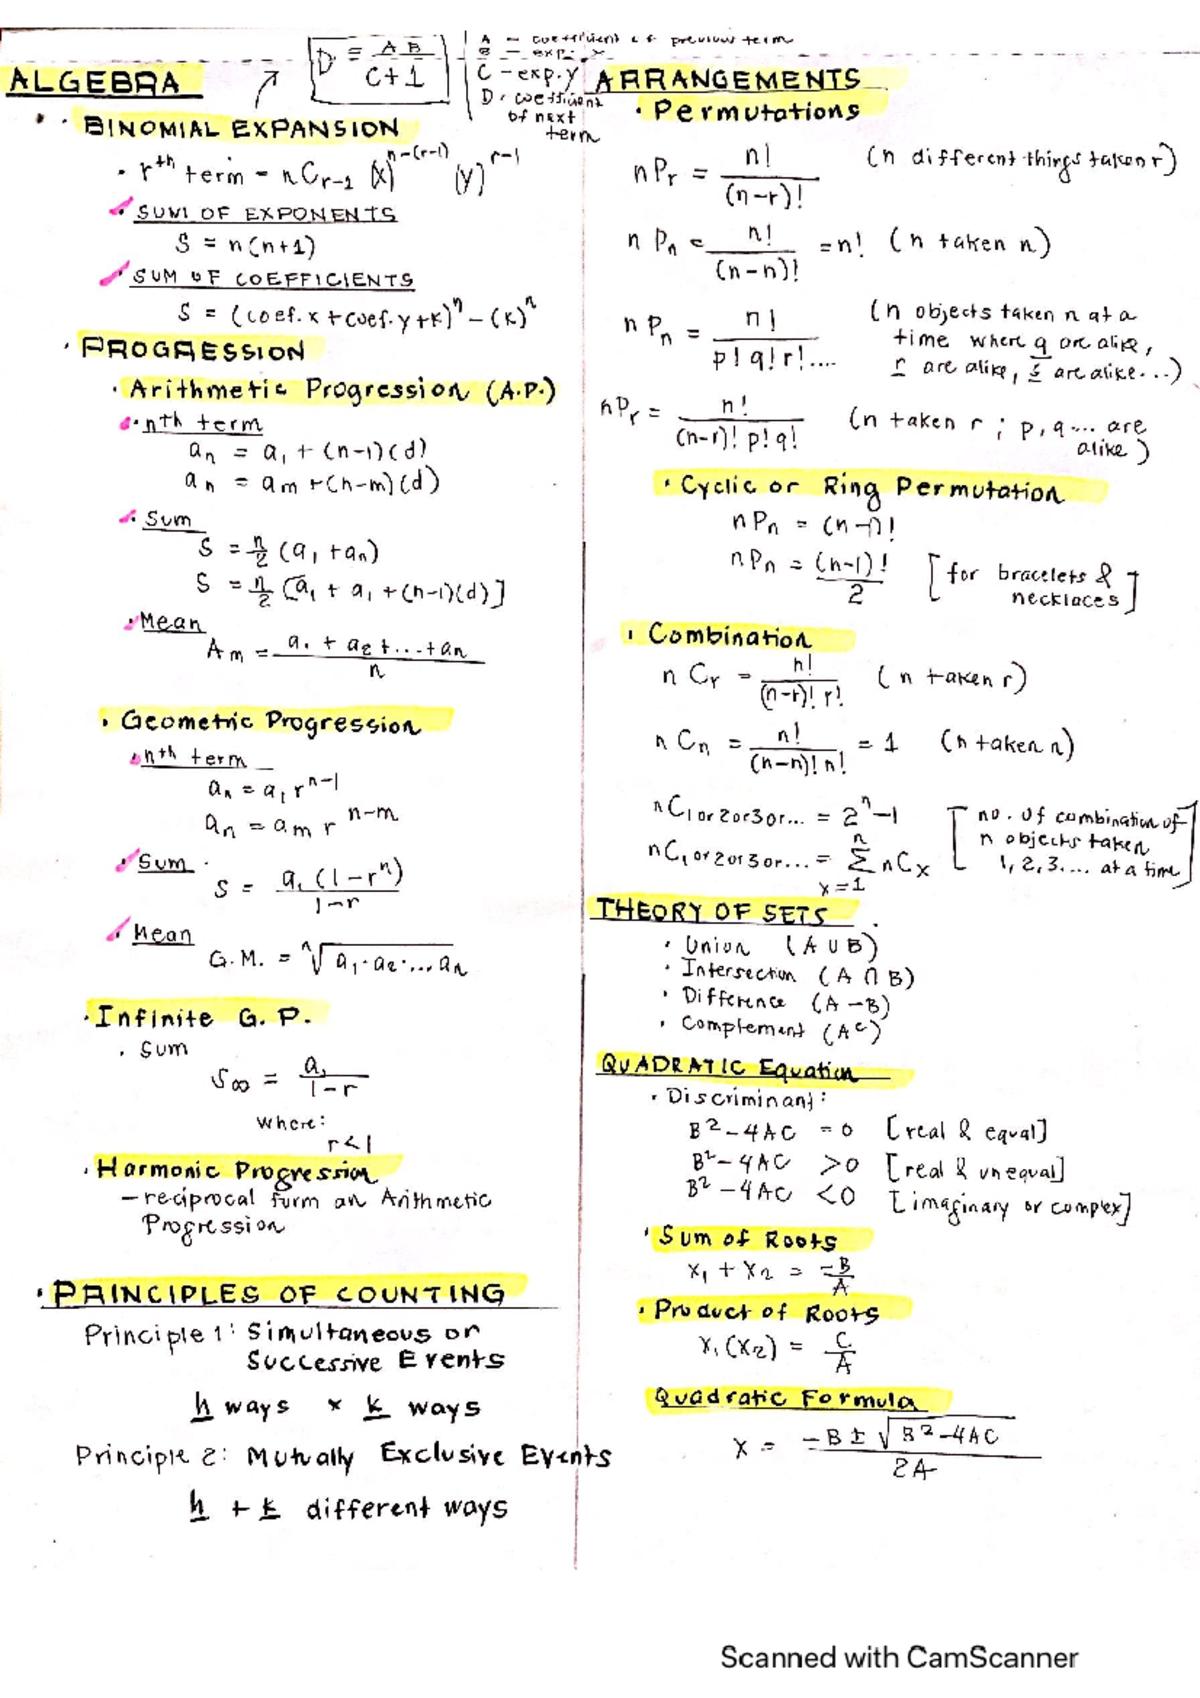 D = AB / C+1
A – coefficient of previous term
B – exp. x
C – exp. y
D - coefficient
of next
term
ALGEBRA
· BINOMIAL EXPANSION
· rth term = nCr-1 (x)^n-(r-1) (y)^r-1
SUM OF EXPONENTS
S = n(n+1)
SUM OF COEFFICIENTS
S = (coef. x + coef. y + k)^n – (k)^n
· PROGRESSION
· Arithmetic Progression (A.P.)
· nth term
an = a1 + (n-1)(d)
an = am + (n-m)(d)
· Sum
S = n/2 (a1 + an)
S = n/2 [a1 + a1 + (n-1)(d)]
· Mean
Am = a1 + a2 + ... + an / n
· Geometric Progression
nth term
an = a1 r^n-1
an = am r^n-m
Sum
S = a1 (1-r^n) / 1-r
Mean
G.M. = ^n√a1·a2·...an
· Infinite G.P.
· Sum
S∞ = a1 / 1-r
where:
r<1
· Harmonic Progression
– reciprocal form an Arithmetic
Progression
· PRINCIPLES OF COUNTING
Principle 1: Simultaneous or
Successive Events
h ways x k ways
Principle 2: Mutually Exclusive Events
h + k different ways
ARRANGEMENTS
· Permutations
nPr = n! / (n-r)! (n different things taken r)
nPn = n! / (n-n)! = n! (n taken n)
nPn = n! / p! q! r!.... (n objects taken n at a
time where q are alike,
r are alike, s are alike...)
nPr = n! / (n-r)! p! q! (n taken r ; p, q.... are
alike)
· Cyclic or Ring Permutation
nPn = (n-1)!
nPn = (n-1)! / 2 [for bracelets &
necklaces]
· Combination
nCr = n! / (n-r)! r! (n taken r)
nCn = n! / (n-n)! n! = 1 (n taken n)
nC1 or 2 or 3 or... = 2^n-1 [no. of combination of
n objects taken
1, 2, 3.... at a time]
nC1 or 2 or 3 or... = n Σ x=1 nCx
THEORY OF SETS
· Union (A ∪ B)
· Intersection (A ∩ B)
· Difference (A – B)
· Complement (A^c)
QUADRATIC Equation
· Discriminant:
B²-4AC = 0 [real & equal]
B²-4AC >0 [real & unequal]
B²-4AC <0 [imaginary or complex]
· Sum of Roots
x1 + x2 = -B/A
· Product of Roots
x1(x2) = C/A
Quadratic Formula
x = -B ± √B²-4AC / 2A
Scanned with CamScanner